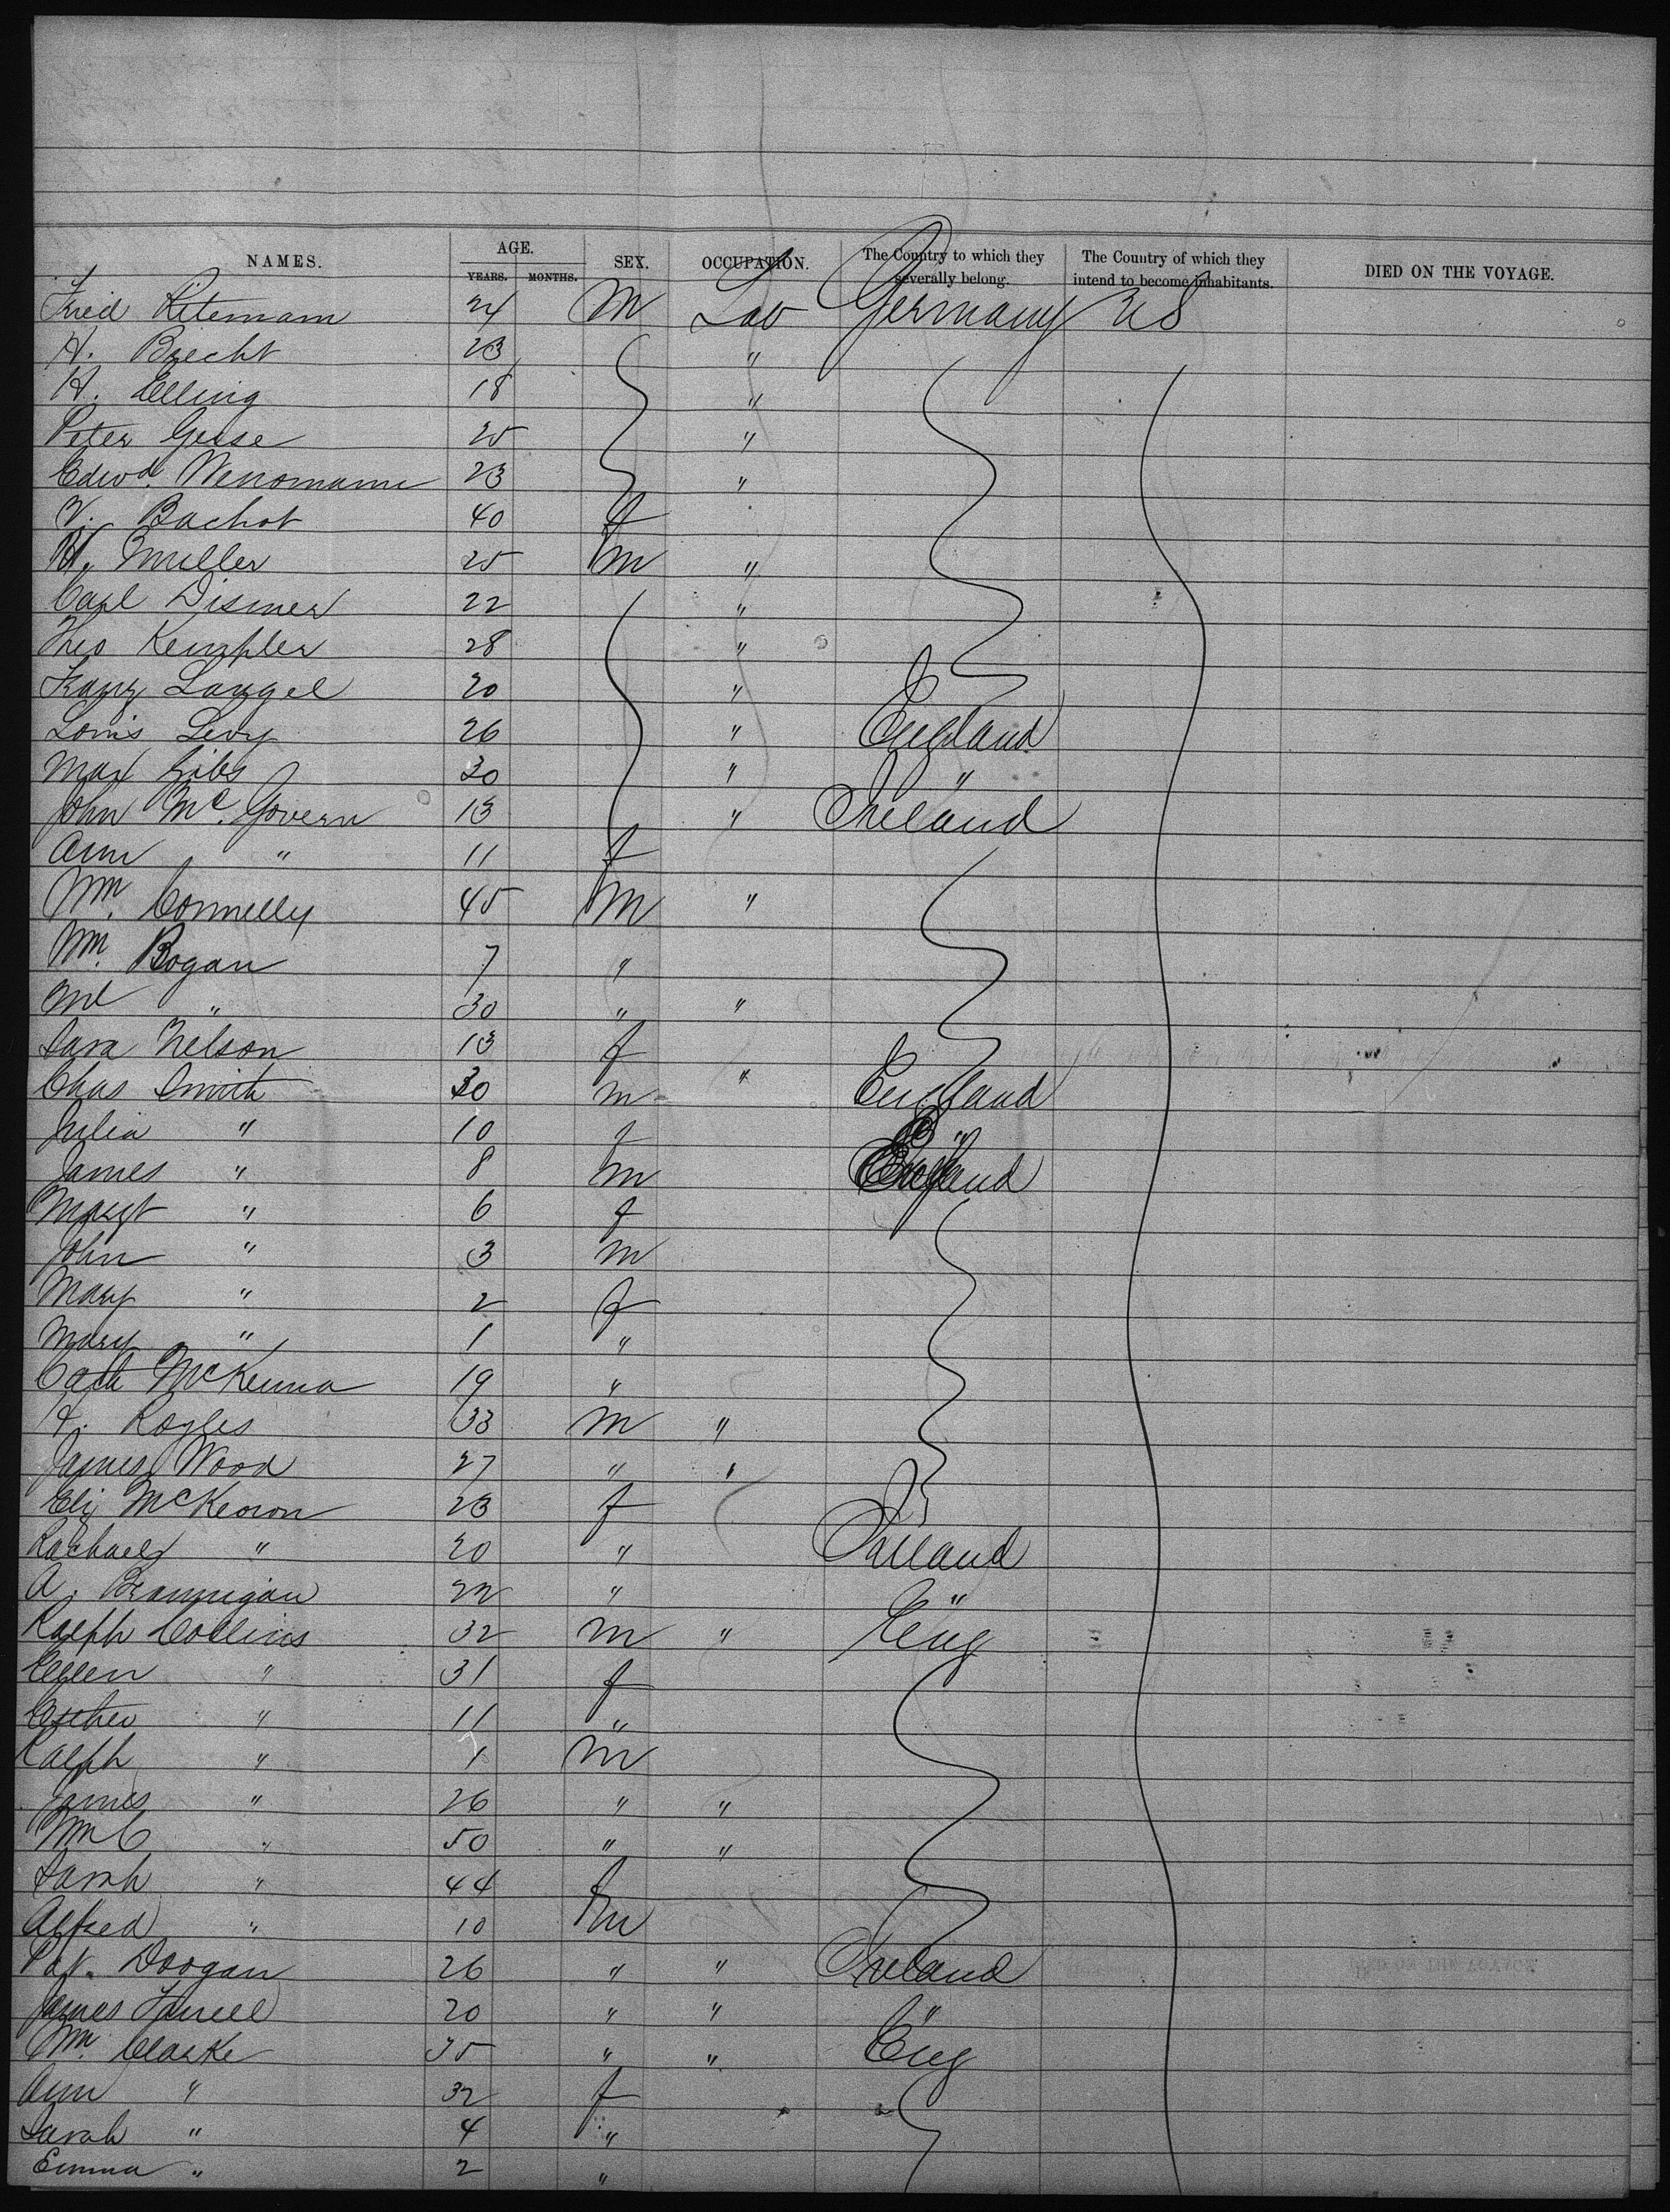 NAMES. AGE. SEX. OCCUPATION. The Country to which they severally belong. The Country of which they intend to become inhabitants. DIED ON THE VOYAGE.
YEARS. MONTHS.
Fried Ritemann 24 M Lab Germany US
H. Brecht 23 "
H. Elling 18 "
Peter Gerse 25 "
Edwd. 23 "
V. Bachot 40 f
H. Muller 25 m "
Carl Dismer 22 "
Theo Kempler 28 "
Franz Langel 20 "
Louis Levy 26 " England
Max 30 " "
John McGovern 13 " Ireland
Ann " 11 f
Wm. Connelly 45 m "
Wm. Bogan 7 "
Ml " 30 " "
Sara Nelson 13 f
Chas Smith 30 m " England
Julia " 10 f "
James " 8 m England
Margt " 6 f
John " 3 m
Mary " 2 f
Mary " 1 "
Cath McKenna 19 "
H. Royles 33 m "
James Wood 27 " "
Eliz McKeown 23 f
Rachael " 20 " Ireland
A. Brannigan 22 " "
Ralph Collins 32 m " Eng
Ellen " 31 f
Esther " 11 "
Ralph " 1 m
James " 26 " "
Wm C " 50 " "
Sarah " 44 f
Alfred " 10 m
Pat. Doogan 26 " " Ireland
James Farrell 20 " " "
Wm. Clarke 35 " " Eng
Ann " 32 f
Sarah " 4 "
Emma " 2 "